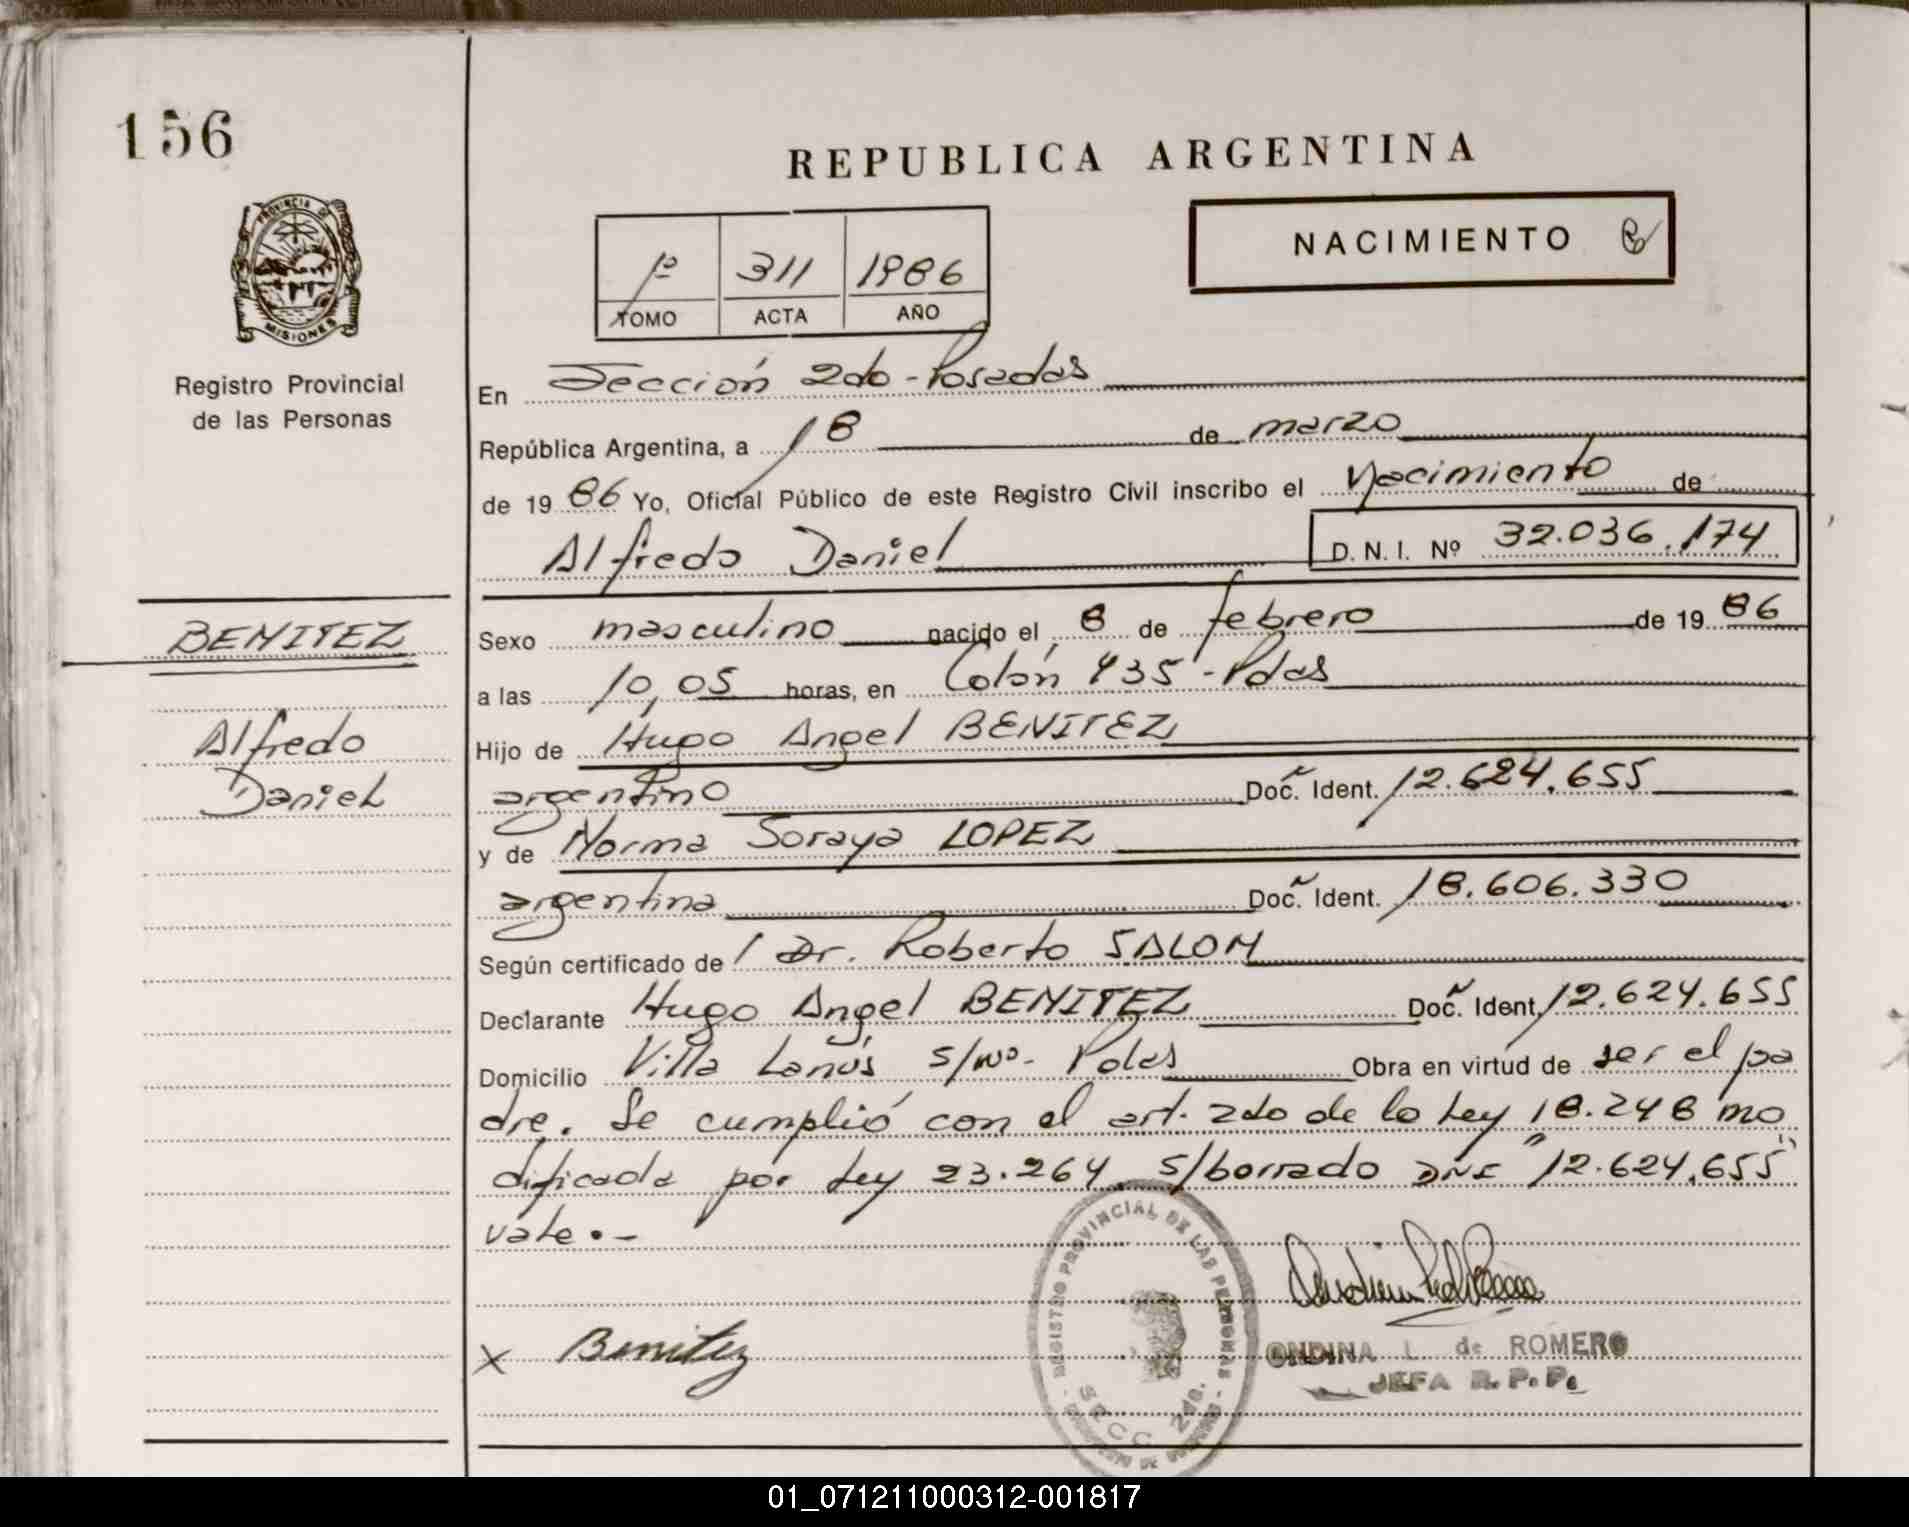 156
REPUBLICA ARGENTINA
PROVINCIA DE MISIONES
Registro Provincial
de las Personas
1º 311 1986
TOMO ACTA AÑO
NACIMIENTO
En Sección 2do - Posadas
República Argentina, a 18 de marzo
de 1986 Yo, Oficial Público de este Registro Civil inscribo el Nacimiento de
Alfredo Daniel D. N. I. Nº 32.036.174
BENITEZ
Alfredo
Daniel
Sexo masculino nacido el 8 de febrero de 1986
a las 10,05 horas, en Colón 435 - Pdas
Hijo de Hugo Angel BENITEZ
argentino Doc. Ident. 12.624.655
y de Norma Soraya LOPEZ
argentina Doc. Ident. 18.606.330
Según certificado de / Dr. Roberto SALOM
Declarante Hugo Angel BENITEZ Doc. Ident. 12.624.655
Domicilio Villa Lanús s/nº - Pdas Obra en virtud de ser el pa
dre. Se cumplió con el art. 2do de la Ley 18.248 mo
dificada por Ley 23.264 s/borrado DNI "12.624.655"
vale.-
X Benitez
REGISTRO PROVINCIAL DE LAS PERSONAS
S.R.C.C. 2da.
ONDINA L. de ROMERO
JEFA R. P. P.
01_071211000312-001817